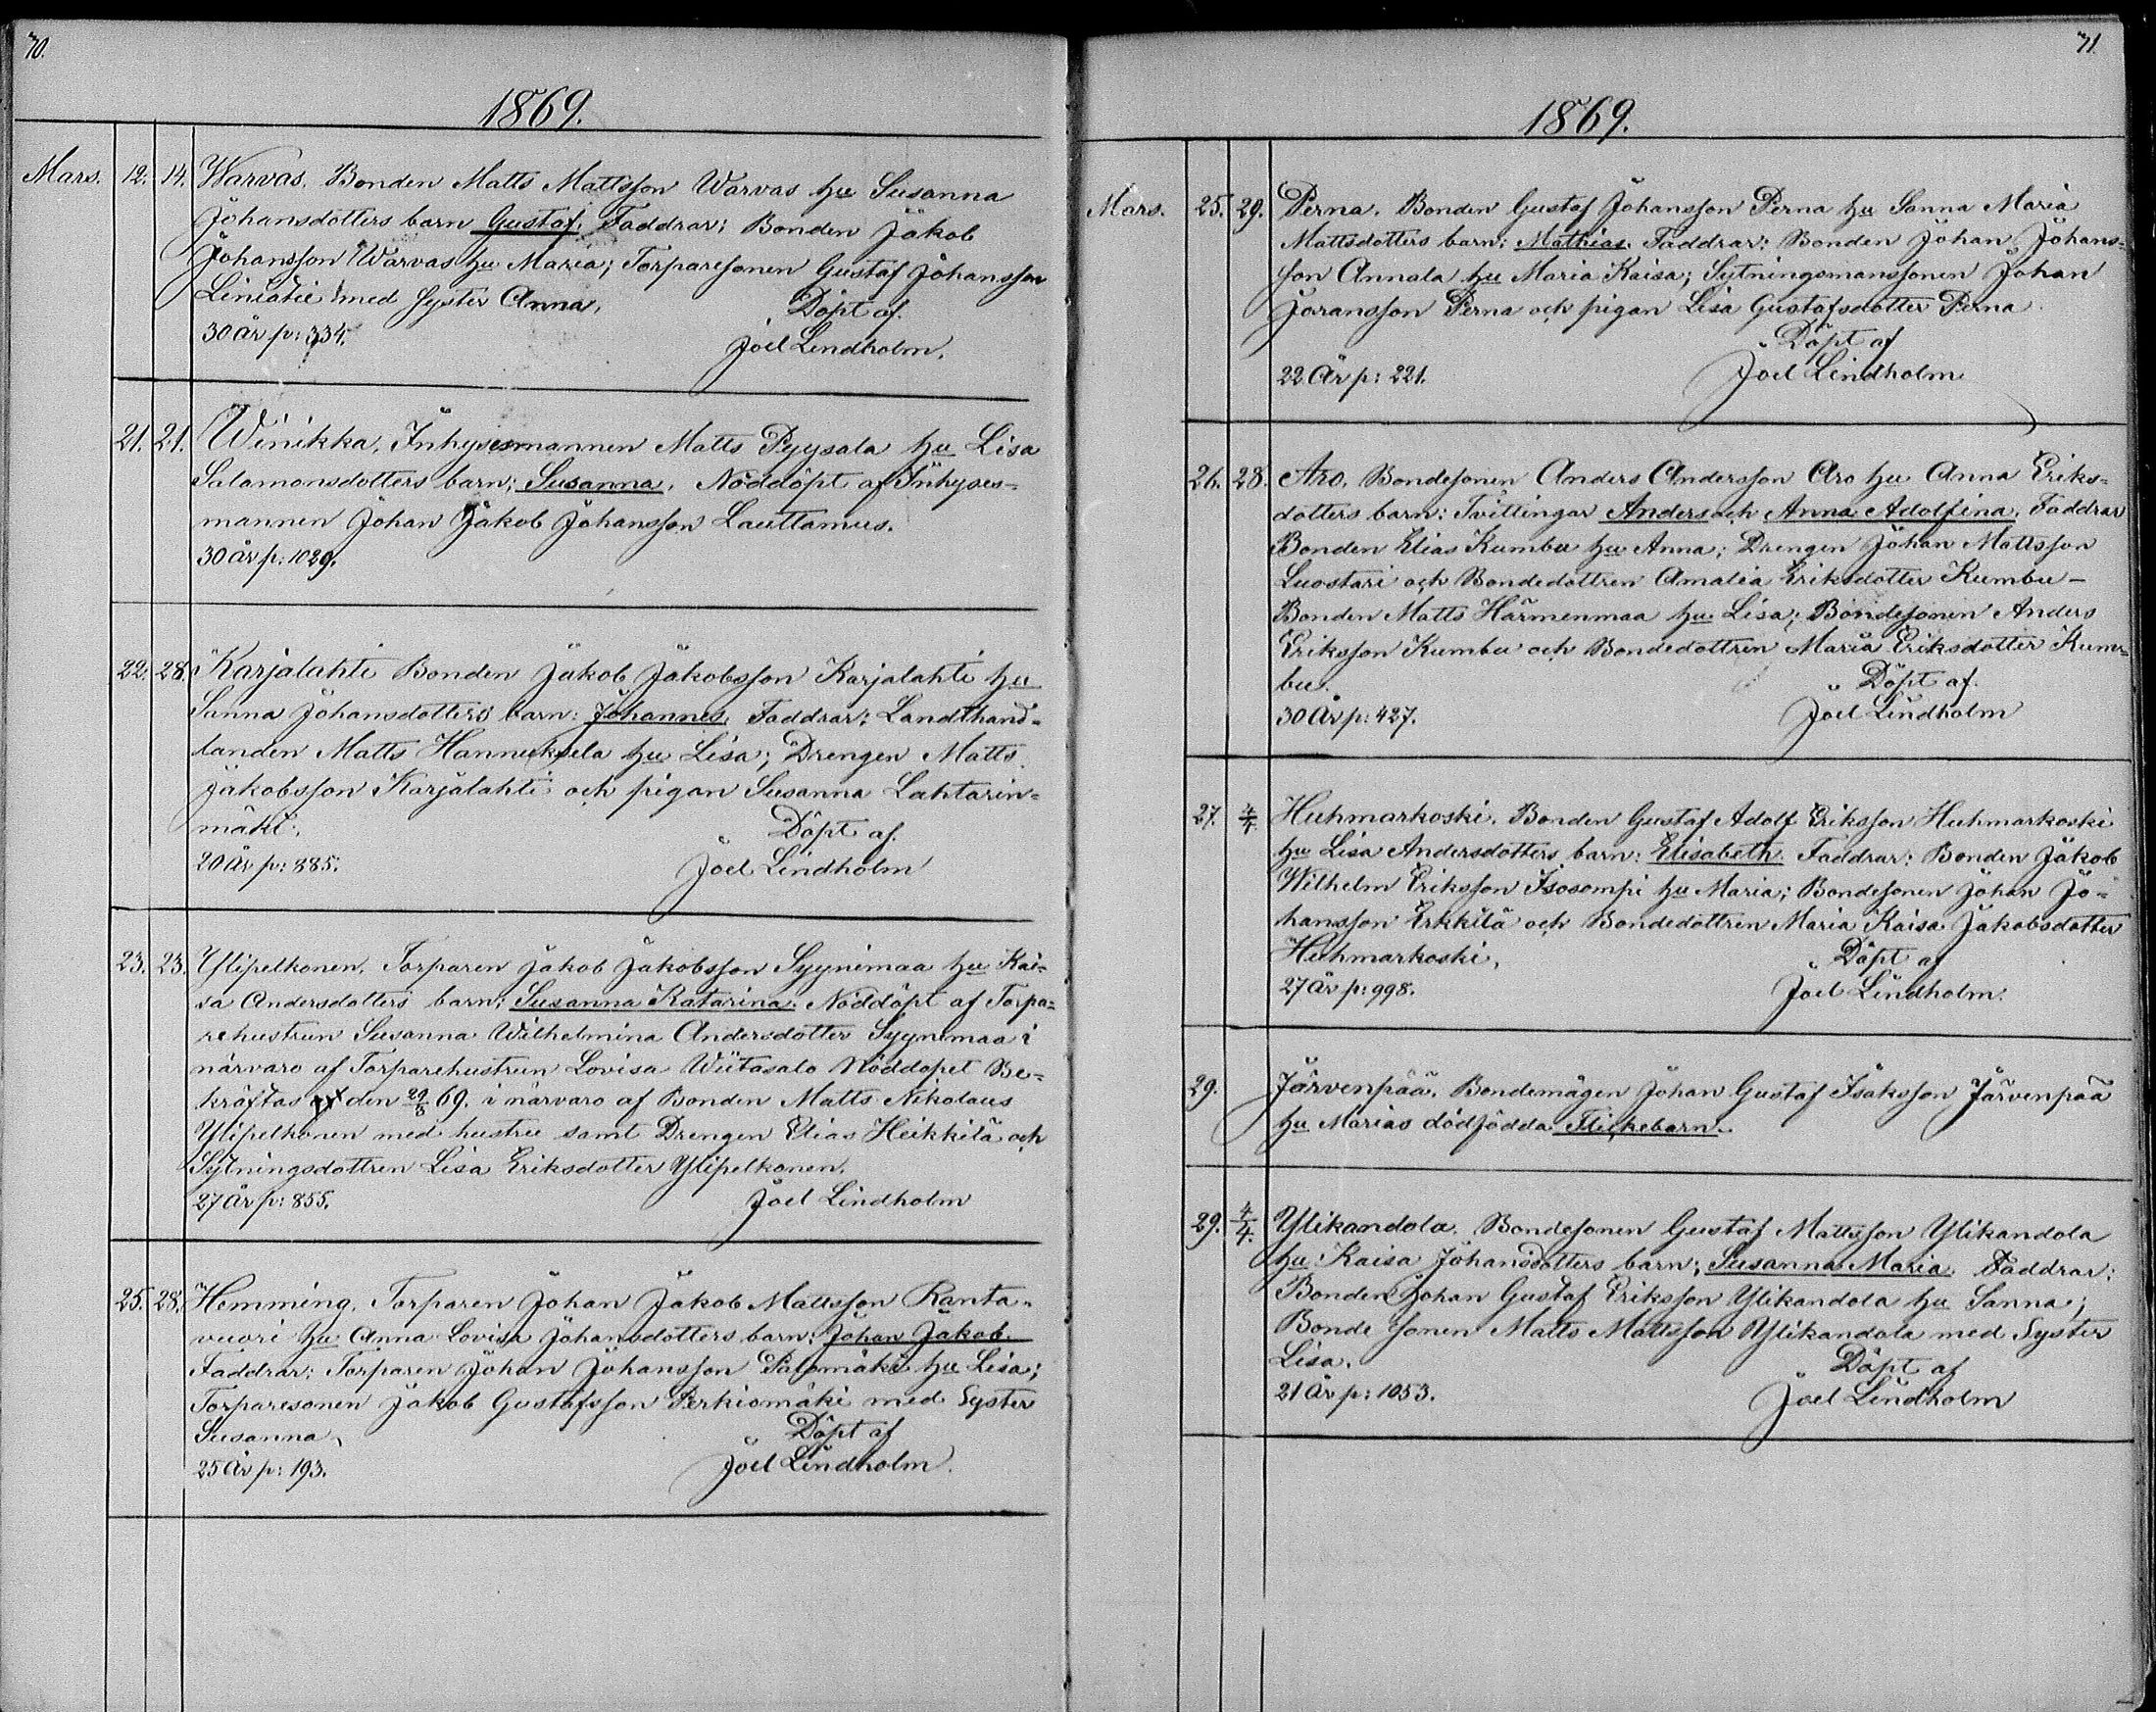 70.
1869.
Mars. 12. 14. Warvas. Bonden Matts Mattsson Warvas hu Susanna
Johansdotters barn Gustaf. Faddrar: Bonden Jakob
Johansson Warvas hu Maria; Torparesonen Gustaf Johansson
med syster Anna. Döpt af
30 år p: 334. Joel Lindholm.
21. 21. Winikka, Inhysesmannen Matts Pyysala hu Lisa
Salomonsdotters barn; Susanna. Nöddöpt af Inhyses-
mannen Johan Jakob Johansson Lauttamus.
30 år p: 1029.
22. 28. Karjalahti Bonden Jakob Jakobsson Karjalahti hu
Sanna Johansdotters barn: Johannes. Faddrar: Landthand-
landen Matts Hannuksela hu Lisa; Drengen Matts
Jakobsson Karjalahti och pigan Susanna Lahtarin-
mäki. Döpt af
20 år p: 885. Joel Lindholm
23. 23. Ylipelkonen. Torparen Jakob Jakobsson Syynimaa hu Kai-
sa Andersdotters barn; Susanna Katarina. Nöddöpt af Torpa-
rehustrun Susanna Wilhelmina Andersdotter Syynimaa i
närvaro af Torparehustrun Lovisa Wiitasalo Nöddopet Be-
kräftas den 29/3 69. i närvaro af Bonden Matts Nikolaus
Ylipelkonen med hustru samt Drengen Elias Heikkilä och
Sytningsdottren Lisa Eriksdotter Ylipelkonen.
27 år p: 855. Joel Lindholm
25. 28. Hemming. Torparen Johan Jakob Mattsson Ranta-
vuori hu Anna Lovisa Johansdotters barn: Johan Jakob.
Faddrar: Torparen Johan Johansson Palomäki hu Lisa;
Torparesonen Jakob Gustafsson Perkiömäki med Syster
Susanna. Döpt af
25 år p: 193. Joel Lindholm.
71.
1869.
Mars. 25. 29. Perna. Bonden Gustaf Johansson Perna hu Sanna Maria
Mattsdotters barn: Mathias. Faddrar: Bonden Johan Johans-
son Annala hu Maria Kaisa; Sytningsmanssonen Johan
Joransson Perna och pigan Lisa Gustafsdotter Perna.
Döpt af
22 År p: 221. Joel Lindholm
26. 28. Aro. Bondesonen Anders Andersson Aro hu Anna Eriks-
dotters barn: Tvillingar Anders och Anna Adolfina. Faddrar
Bonden Elias Kumbu hu Anna; Drengen Johan Mattsson
Luostari och Bondedottren Amalia Eriksdotter Kumbu –
Bonden Matts Härmenmaa hu Lisa; Bondesonen Anders
Eriksson Kumbu och Bondedottren Maria Eriksdotter Kum-
bu. Döpt af
30 År p: 427. Joel Lindholm
27. 4/4. Huhmarkoski. Bonden Gustaf Adolf Eriksson Huhmarkoski
hu Lisa Andersdotters barn: Elisabeth. Faddrar: Bonden Jakob
Wilhelm Eriksson Isosompi hu Maria; Bondesonen Johan Jo-
hansson Erkkilä och Bondedottren Maria Kaisa Jakobsdotter
Huhmarkoski. Döpt af
27 År p: 998. Joel Lindholm.
29. Järvenpää. Bondemågen Johan Gustaf Isaksson Järvenpää
hu Marias dödfödda Flickebarn.
29. 4/4. Ylikandola. Bondesonen Gustaf Mattsson Ylikandola
hu Kaisa Johansdotters barn; Susanna Maria. Faddrar:
Bonden Johan Gustaf Eriksson Ylikandola hu Sanna;
Bonde sonen Matts Mattsson Ylikandola med Syster
Lisa. Döpt af
21 År p: 1053. Joel Lindholm